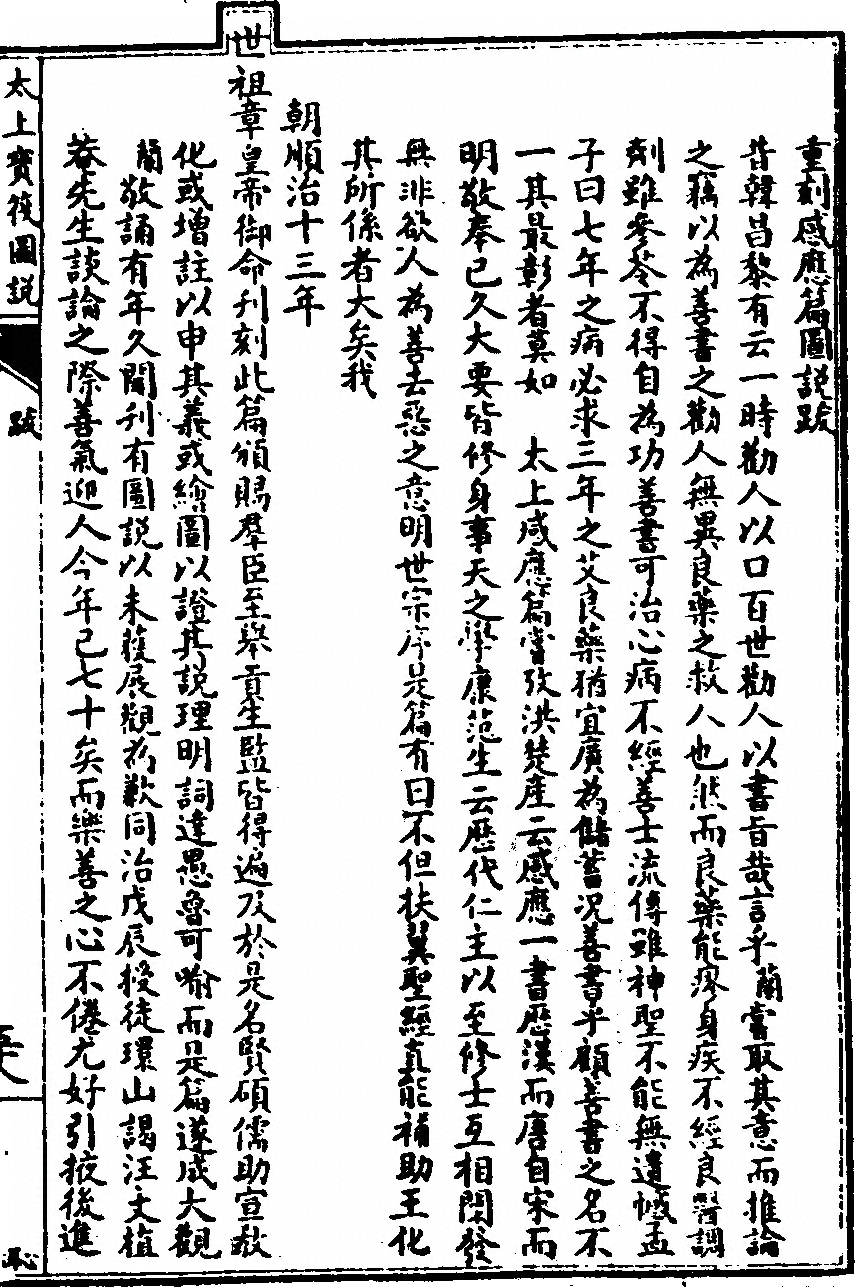 重刻感應篇圖説跋
昔韓昌黎有云一時勸人以口百世勸人以書旨哉言乎蘭嘗取其意而推論
之竊以為善書之勸人無異良藥之救人也然而良藥能療身疾不經良醫調
劑雖參苓不得自為功善書可治心病不經善士流傳雖神聖不能無遺憾孟
子曰七年之病必求三年之艾良藥猶宜廣為儲蓄况善書乎顧善書之名不
一其最彰者莫如 太上感應篇嘗攷洪楚産云感應一書歴漢而唐自宋而
明敬奉已久大要皆修身事天之學康范生云歴代仁主以至修士互相闡發
無非欲人為善去惡之意明世宗序是篇有曰不但扶翼聖經直能補助王化
其所係者大矣我
朝順治十三年
世祖章皇帝御命刋刻此篇頒賜羣臣至舉貢生監皆得遍及於是名賢碩儒助宣教
化或增註以申其義或繪圖以證其説理明詞達愚魯可喻而是篇遂成大觀
蘭敬誦有年久聞刋有圖説以未獲展觀為歉同治戊辰授徒環山謁汪文植
菴先生談論之際善氣迎人今年已七十矣而樂善之心不倦尤好引掖後進
太上寶筏圖説
跋
恥